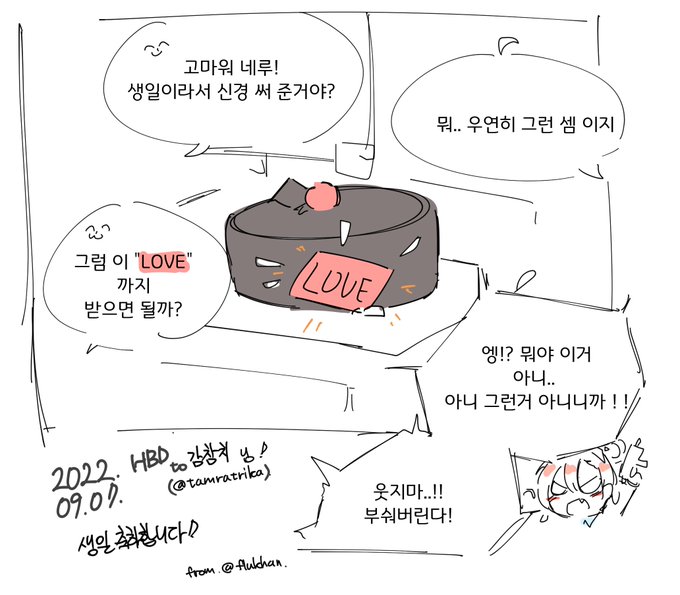 고마워 네루!
생일이라서 신경 써 준거야?
뭐.. 우연히 그런 셈 이지
그럼 이 "LOVE"
까지
받으면 될까?
LOVE
엥!? 뭐야 이거
아니..
아니 그런거 아니니까 ! !
웃지마..!!
부숴버린다!
2022.
09.07.
HBD
to 김참치 님♪
(@tamratrika)
생일 축하합니다♪
from. @flukhan.